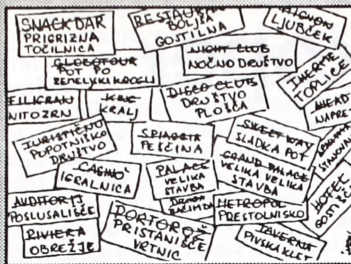 SNACK BAR
PRIGRIZNA
TOČILNICA
RESTAURANT
BOLJŠA
GOSTILNA
MIGNON
LJUBČEK
GLOBOTOUR
POT PO
ZEMELJSKI KROGLI
NIGHT CLUB
NOČNO DRUŠTVO
THERME
TOPLICE
FILIGRAN
NITOZRN
KING
KRALJ
DISCO CLUB
DRUŠTVO
PLOŠČA
AHEAD
NAPREJ
TURISTIČNO
POPOTNIŠKO
DRUŠTVO
SPIAGGIA
PEŠČINA
SWEET WAY
SLADKA POT
CASINO
IGRALNICA
PALACE
VELIKA
STAVBA
GRAND PALACE
VELIKA VELIKA
STAVBA
AUDITORIJ
POSLUŠALIŠČE
METROPOL
PRESTOLNISKO
HOTEL
RIVIERA
OBREŽJE
PORTOROŽ
PRISTANIŠČE
VRTNIC
TAVERNA
PIVSKA KLET